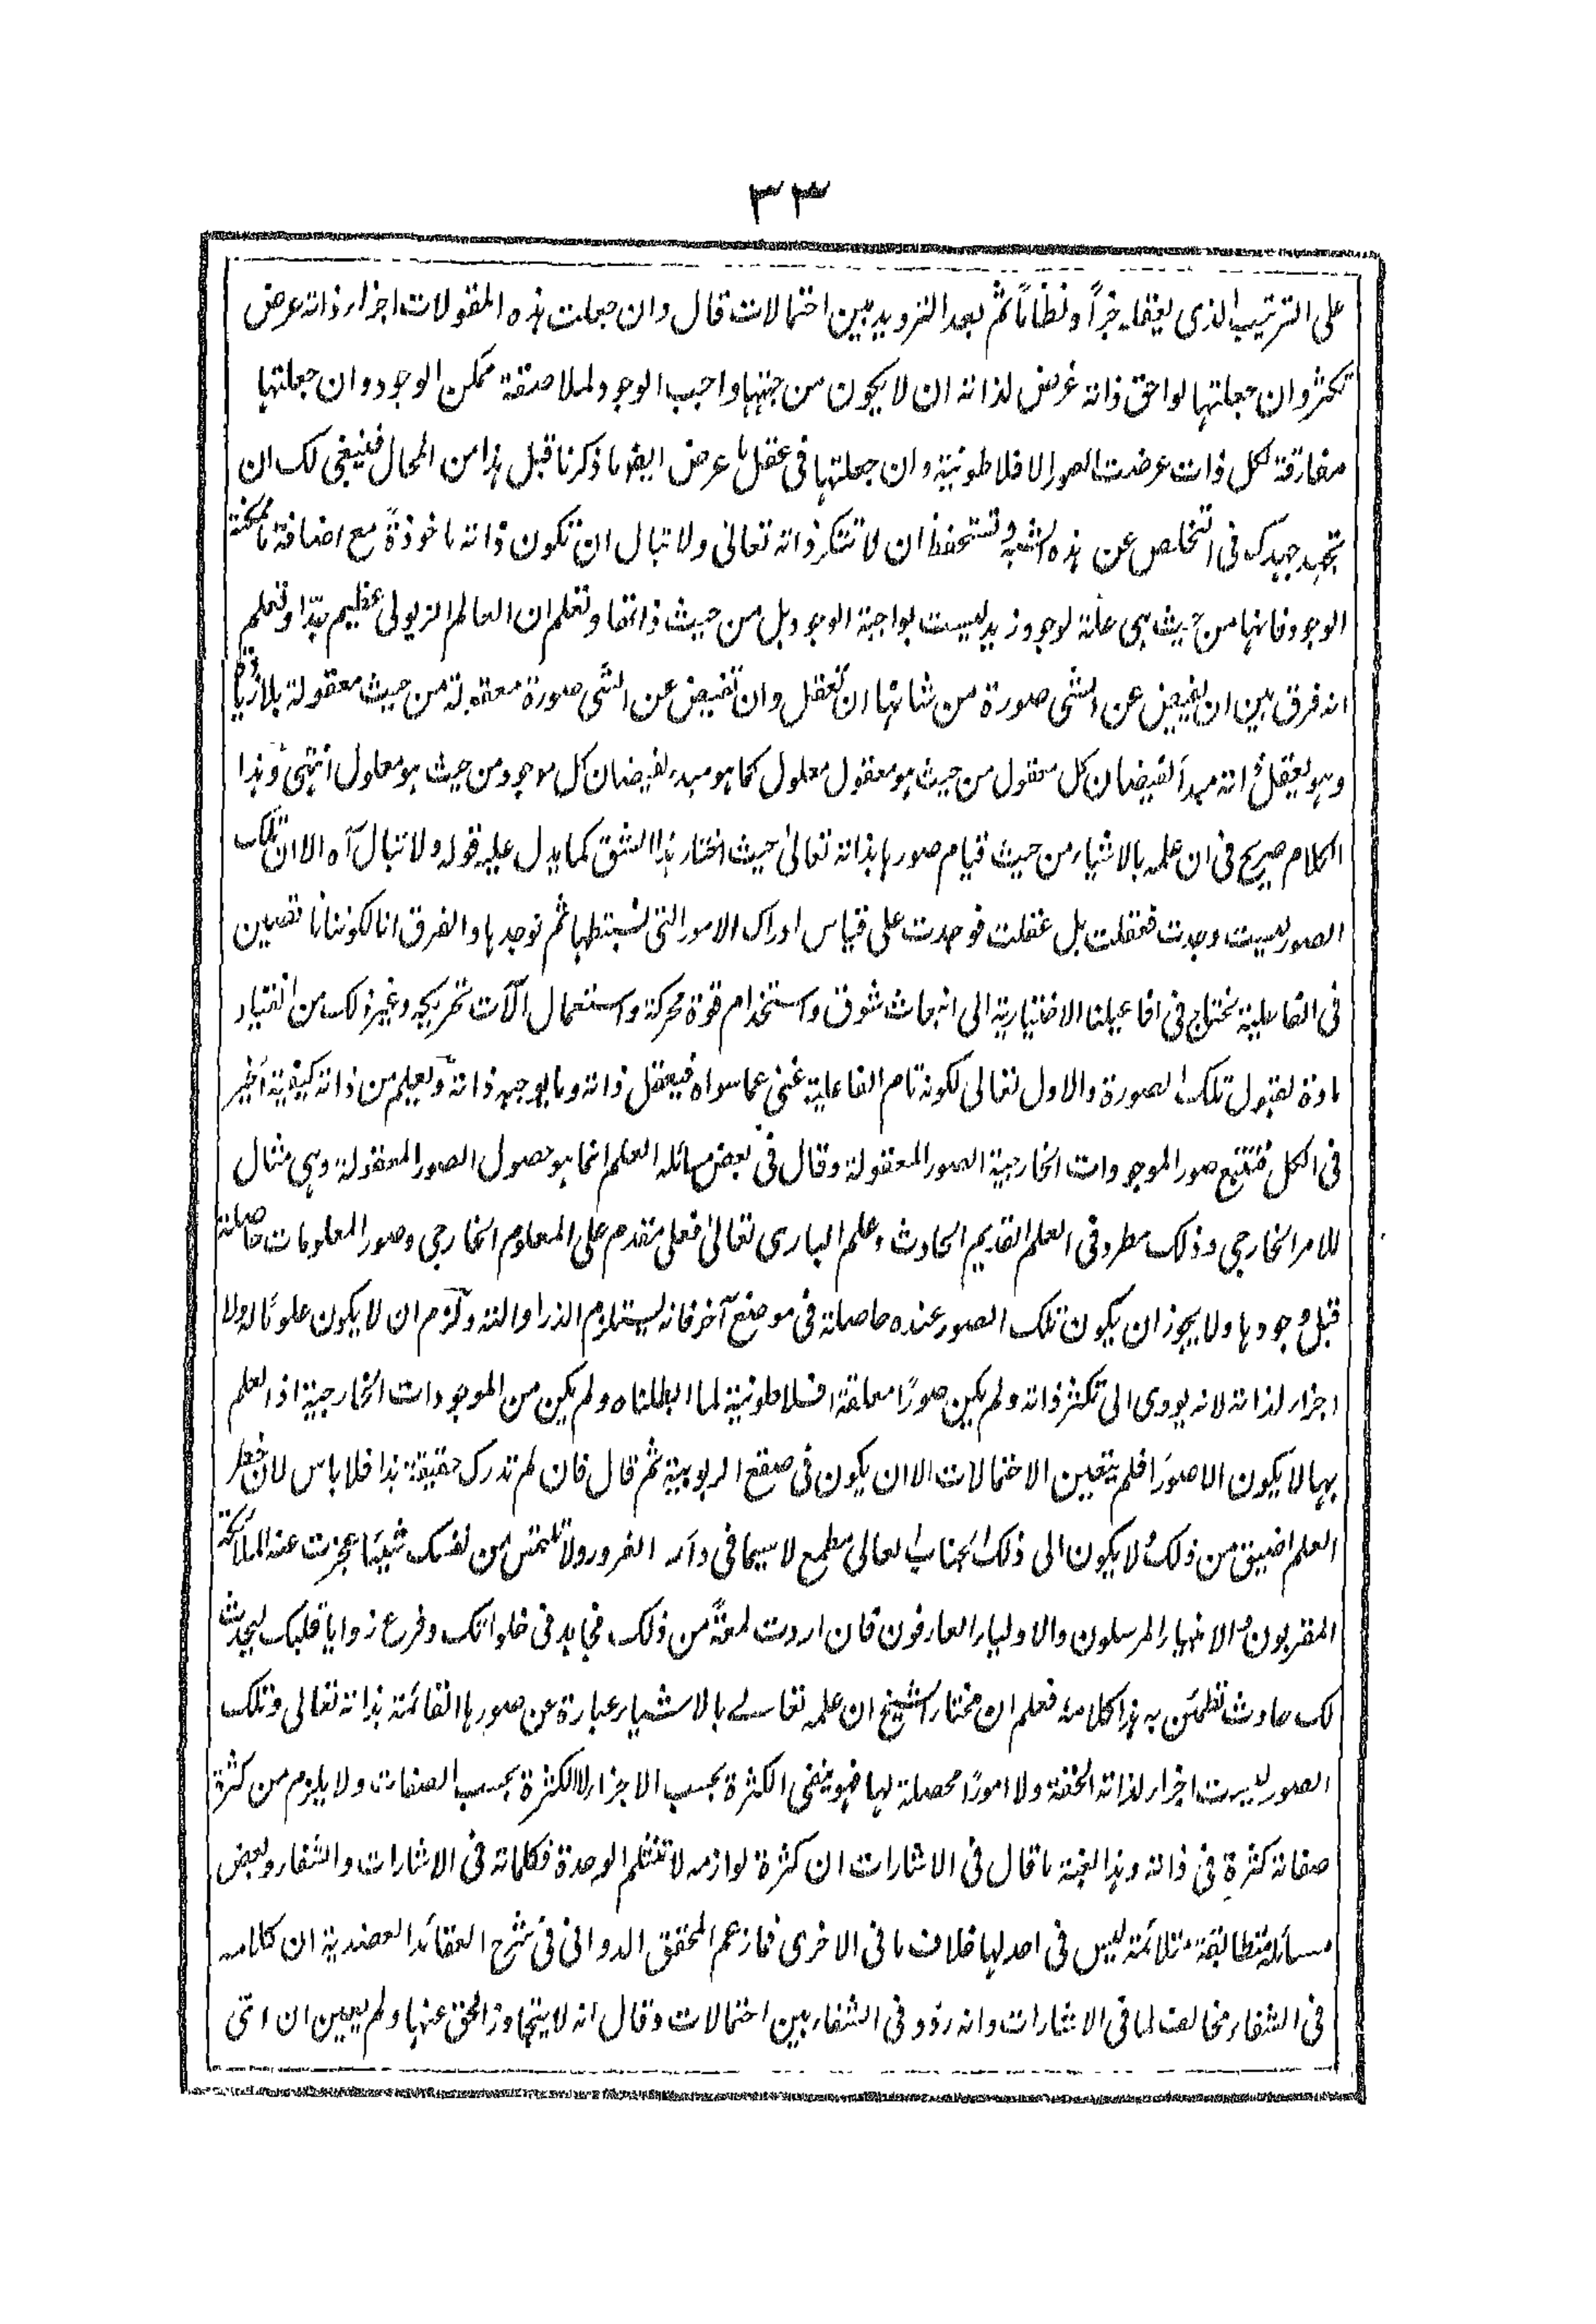 ٣٣
على الترتيب الذى يعقله خيراً ونظاماً ثم بعد الترديد بين احتمالات قال وان جعلت هذه المقولات اجزاء ذاته عرض
تكثر وان جعلتها لواحق ذاته عرض لذاته ان لا يكون من جهتها واجب الوجود لملاصقة ممكن الوجود وان جعلتها
مفارقة لكل ذات عرضت الصور الافلاطونية وان جعلتها فى عقل ما عرض ايضا ما ذكرنا قبل هذا من المحال فينبغى لك ان
تجهد جهدك فى التخلص عن هذه الشبه وتستحفظ ان لا تتكثر ذاته تعالى ولا تبال ان تكون ذاته ماخوذة مع اضافة ما ممكنة
الوجود فانها من حيث هى علة لوجود زيد ليست بواجبة الوجود بل من حيث ذاتها وتعلم ان العالم الربوبى عظيم جدا وتعلم
انه فرق بين ان يفيض عن الشئ صورة من شانها ان تعقل وان تفيض عن الشئ صورة معقولة من حيث معقولة بلا زيادة
وهو يعقل انه مبدأ لفيضان كل معقول من حيث هو معقول معلول كما هو مبدء لفيضان كل موجود من حيث هو معلول انتهى وهذا
الكلام صريح فى ان علمه بالاشياء من حيث قيام صورها بذاته تعالى حيث اختار هذا الشق كما يدل عليه قوله ولا تبال آه الا ان تلك
الصور ليست وجدت فعقلت بل عقلت فوجدت على قياس ادراك الامور التى نستنبطها ثم نوجدها والفرق انا لكوننا ناقصين
فى الفاعلية نحتاج فى افاعيلنا الاختيارية الى انبعاث شوق واستخدام قوة محركة واستعمال آلات تحريكيه وغير ذلك من انقياد
مادة لقبول تلك الصورة والاول تعالى لكونه تام الفاعلية غنى عما سواه فيعقل ذاته وما يوجبه ذاته ويعلم من ذاته كيفية الخير
فى الكل فتتبع صور الموجودات الخارجية الصور المعقولة وقال فى بعض رسائله العلم انما هو حصول الصور المعقولة وهى مثال
للامر الخارجى وذلك مطرد فى العلم القديم الحادث وعلم البارى تعالى فعلى متقدم على المعلوم الخارجى وصور المعلومات حاصلة
قبل وجودها ولا يجوز ان يكون تلك الصور عنده حاصلة فى موضع آخر فانه يستلزم الدر او التته ولزم ان لا يكون علومًا له ولا
اجزاء لذاته لانه يودى الى تكثر ذاته ولم يكن صورًا معلقة افلاطونية لما ابطلناه ولم يكن من الموجودات الخارجية اذ العلم
بها لا يكون الا صورًا فلم يتعين الاحتمالات الا ان يكون فى صقع الربوبية ثم قال فان لم تدرك حقيقة هذا فلا باس لان
العلم اضيق من ذلك ولا يكون الى ذلك الجناب العالى مطمع لا سيما فى دار الغرور ولا تلتمس من نفسك شيئا عجزت عنه الملائكة
المقربون والانبياء المرسلون والاولياء العارفون فان اردت لمعة من ذلك فجاهد فى خلواتك وفرغ زوايا قلبك ليحدث
لك حادث تطمئن به هذا كلامه فعلم ان مختار الشيخ ان علمه تعالى بالاشياء عبارة عن صورها القائمة بذاته تعالى وتلك
الصور ليست اجزاء لذاته الحقة ولا امورًا محصلة لها فهو ينفى الكثرة بحسب الاجزاء لا الكثرة بحسب الصفات ولا يلزم من كثرة
صفاته كثرة فى ذاته وهذا بعينه ما قال فى الاشارات ان كثرة لوازمه لا تنثلم الوحدة فكلماته فى الاشارات والشفاء وبعض
رسائله متطابقة متلائمة ليس فى احدلها خلاف ما فى الاخرى فما زعم المحقق الدوانى فى شرح العقائد العضدية ان كلامه
فى الشفاء مخالف لما فى الاشارات وانه ردد فى الشفاء بين احتمالات وقال انه لا يتجاوز الحق عنها ولم يبين ان اتى